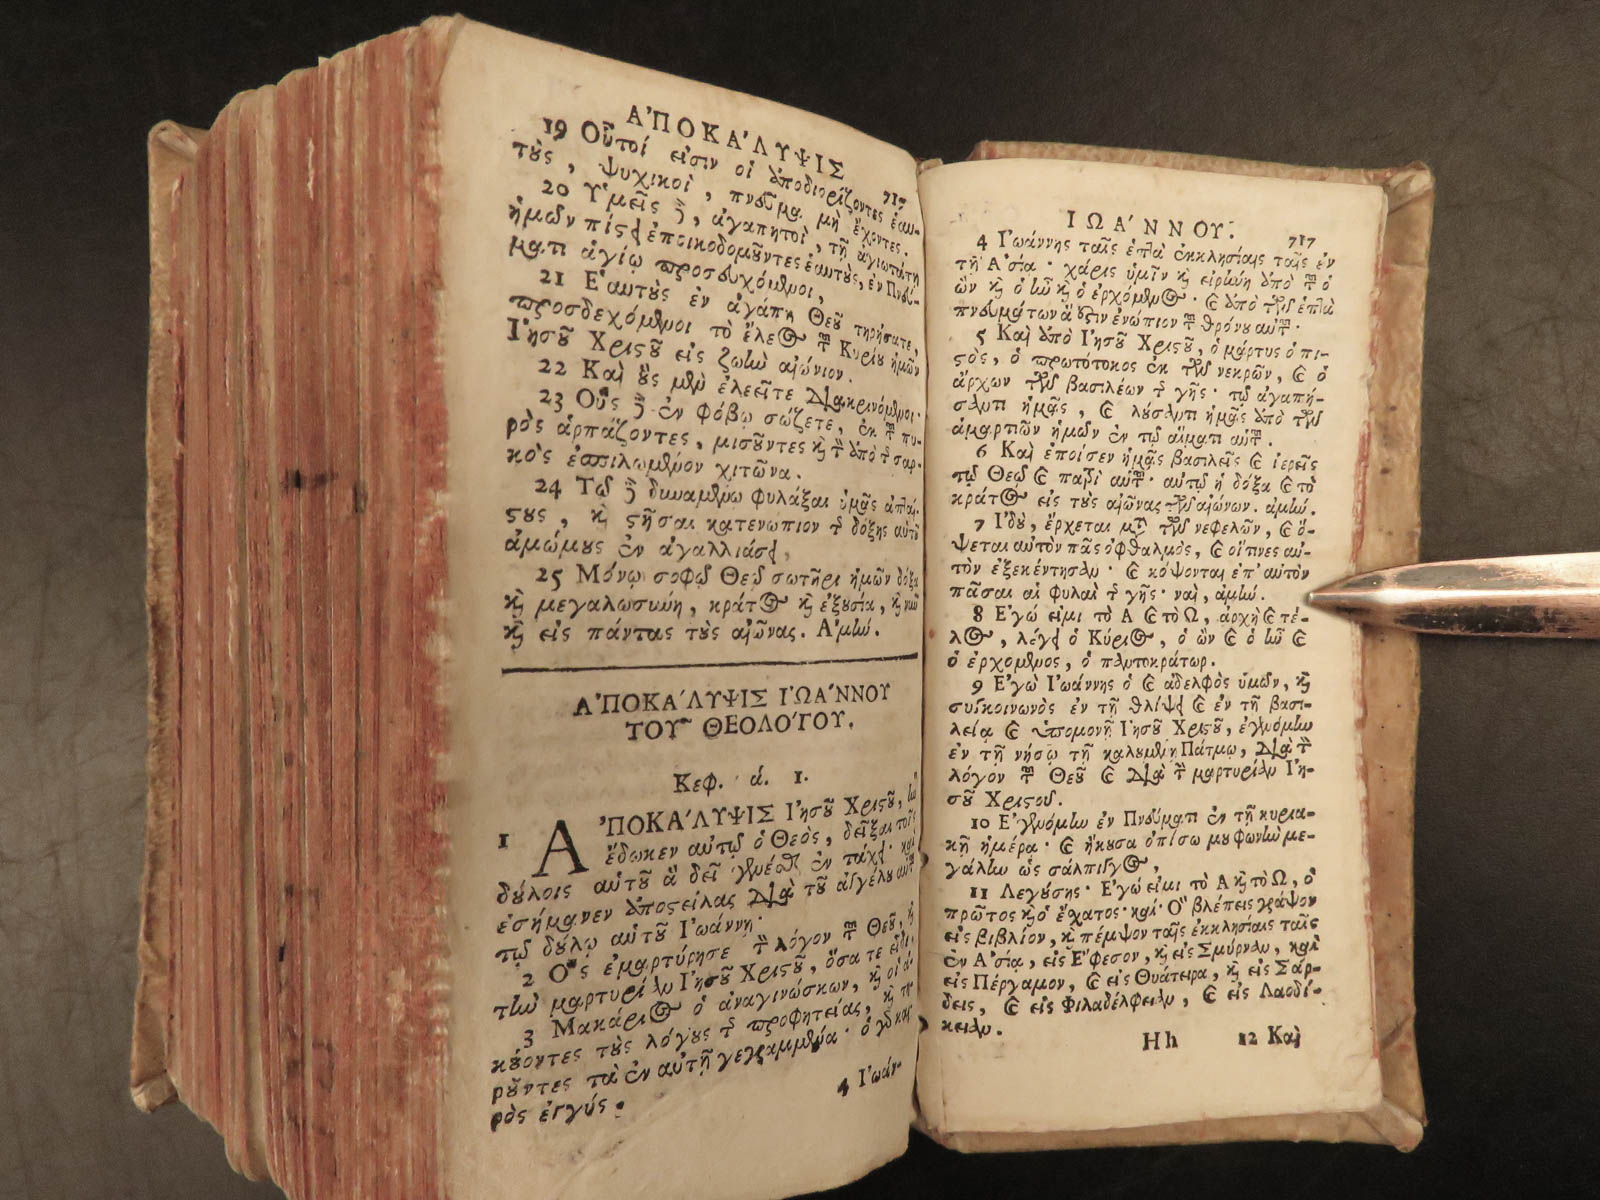 ΑΠΟΚΑΛΥΨΙΣ
19 Οὗτοί εἰσιν οἱ ἀποδιορίζοντες ἑαυ-
τοὺς, ψυχικοὶ, πνεῦμα μὴ ἔχοντες.
20 Ὑμεῖς δὲ, ἀγαπητοὶ, τῇ ἁγιωτάτῃ
ἡμῶν πίστει ἐποικοδομοῦντες ἑαυτοὺς, ἐν Πνεύ-
ματι ἁγίῳ προσευχόμενοι,
21 Ἑαυτοὺς ἐν ἀγάπῃ Θεοῦ τηρήσατε,
προσδεχόμενοι τὸ ἔλεος τοῦ Κυρίου ἡμῶν
Ἰησοῦ Χριστοῦ εἰς ζωὴν αἰώνιον.
22 Καὶ οὓς μὲν ἐλεεῖτε διακρινόμενοι·
23 Οὓς δὲ ἐν φόβῳ σώζετε, ἐκ τοῦ πυ-
ρὸς ἁρπάζοντες, μισοῦντες καὶ τὸν ἀπὸ τῆς σαρ-
κὸς ἐσπιλωμένον χιτῶνα.
24 Τῷ δὲ δυναμένῳ φυλάξαι ὑμᾶς ἀπταί-
στους, καὶ στῆσαι κατενώπιον τῆς δόξης αὐτοῦ
ἀμώμους ἐν ἀγαλλιάσει,
25 Μόνῳ σοφῷ Θεῷ σωτῆρι ἡμῶν δόξα
καὶ μεγαλωσύνη, κράτος καὶ ἐξουσία, καὶ νῦν
καὶ εἰς πάντας τοὺς αἰῶνας. Ἀμήν.
ἈΠΟΚΆΛΥΨΙΣ ἸΩΆΝΝΟΥ
ΤΟΥ͂ ΘΕΟΛΌΓΟΥ.
Κεφ. ά. 1.
1 ἈΠΟΚΆΛΥΨΙΣ Ἰησοῦ Χριστοῦ, ἣν
ἔδωκεν αὐτῷ ὁ Θεὸς, δεῖξαι τοῖς
δούλοις αὐτοῦ ἃ δεῖ γενέσθαι ἐν τάχει· καὶ
ἐσήμανεν ἀποστείλας διὰ τοῦ ἀγγέλου αὐτοῦ
τῷ δούλῳ αὐτοῦ Ἰωάννῃ·
2 Ὃς ἐμαρτύρησε τὸν λόγον τοῦ Θεοῦ, καὶ
τὴν μαρτυρίαν Ἰησοῦ Χριστοῦ, ὅσα τε εἶδε.
3 Μακάριος ὁ ἀναγινώσκων, καὶ οἱ ἀ-
κούοντες τοὺς λόγους τῆς προφητείας, καὶ τη-
ροῦντες τὰ ἐν αὐτῇ γεγραμμένα· ὁ γὸ καιρὸς
ρὸς ἐγγύς.
4 Ἰωάν-
ἸΩΆΝΝΟΥ. 717
4 Ἰωάννης ταῖς ἑπτὰ ἐκκλησίαις ταῖς ἐν
τῇ Ἀσίᾳ· χάρις ὑμῖν καὶ εἰρήνη ἀπὸ τοῦ ὁ
ὢν καὶ ὁ ἦν καὶ ὁ ἐρχόμενος· καὶ ἀπὸ τῶν ἑπτὰ
πνευμάτων ἅ ἐστιν ἐνώπιον τοῦ θρόνου αὐτοῦ·
5 Καὶ ἀπὸ Ἰησοῦ Χριστοῦ, ὁ μάρτυς ὁ πι-
στὸς, ὁ πρωτότοκος ἐκ τῶν νεκρῶν, καὶ ὁ
ἄρχων τῶν βασιλέων τῆς γῆς· τῷ ἀγαπή-
σαντι ἡμᾶς, καὶ λούσαντι ἡμᾶς ἀπὸ τῶν
ἁμαρτιῶν ἡμῶν ἐν τῷ αἵματι αὐτοῦ.
6 Καὶ ἐποίσεν ἡμᾶς βασιλεῖς καὶ ἱερεῖς
τῷ Θεῷ καὶ πατρὶ αὐτοῦ· αὐτῷ ἡ δόξα καὶ τὸ
κράτος εἰς τοὺς αἰῶνας τῶν αἰώνων. ἀμήν.
7 Ἰδοὺ, ἔρχεται μετὰ τῶν νεφελῶν, καὶ ὄ-
ψεται αὐτὸν πᾶς ὀφθαλμὸς, καὶ οἵτινες αὐ-
τὸν ἐξεκέντησαν· καὶ κόψονται ἐπ' αὐτὸν
πᾶσαι αἱ φυλαὶ τῆς γῆς· ναὶ, ἀμήν.
8 Ἐγώ εἰμι τὸ Α καὶ τὸ Ω, ἀρχὴ καὶ τέ-
λος, λέγει ὁ Κύριος, ὁ ὢν καὶ ὁ ἦν καὶ
ὁ ἐρχόμενος, ὁ παντοκράτωρ.
9 Ἐγὼ Ἰωάννης ὁ καὶ ἀδελφὸς ὑμῶν, καὶ
συγκοινωνὸς ἐν τῇ θλίψει καὶ ἐν τῇ βασι-
λείᾳ καὶ ὑπομονῇ Ἰησοῦ Χριστοῦ, ἐγενόμην
ἐν τῇ νήσῳ τῇ καλουμένῃ Πάτμῳ, διὰ τὸν
λόγον τοῦ Θεοῦ καὶ διὰ τὴν μαρτυρίαν Ἰη-
σοῦ Χριστοῦ.
10 Ἐγενόμην ἐν Πνεύματι ἐν τῇ κυρια-
κῇ ἡμέρᾳ· καὶ ἤκουσα ὀπίσω μου φωνὴν με-
γάλην ὡς σάλπιγγος,
11 Λεγούσης· Ἐγώ εἰμι τὸ Α καὶ τὸ Ω, ὁ
πρῶτος καὶ ὁ ἔσχατος· καί· Ὃ βλέπεις γράψον
εἰς βιβλίον, καὶ πέμψον ταῖς ἐκκλησίαις ταῖς
ἐν Ἀσίᾳ, εἰς Ἔφεσον, καὶ εἰς Σμύρναν, καὶ
εἰς Πέργαμον, καὶ εἰς Θυάτειρα, καὶ εἰς Σάρ-
δεις, καὶ εἰς Φιλαδέλφειαν, καὶ εἰς Λαοδί-
κειαν.
Hh 12 Καὶ